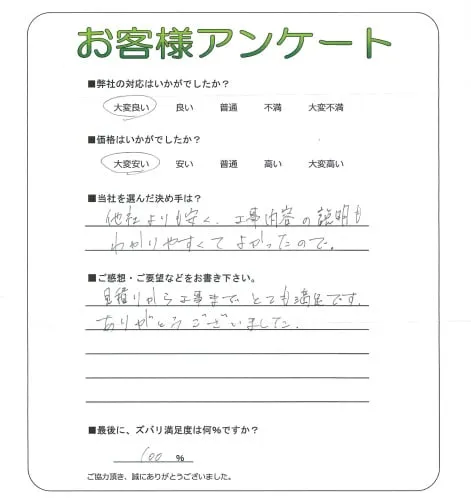 お客様アンケート
■弊社の対応はいかがでしたか？
大変良い 良い 普通 不満 大変不満
■価格はいかがでしたか？
大変安い 安い 普通 高い 大変高い
■当社を選んだ決め手は？
他社よりも安く、工事内容の説明も
わかりやすくてよかったので。
■ご感想・ご要望などをお書き下さい。
見積りから工事まで、とても満足です。
ありがとうございました。
■最後に、ズバリ満足度は何%ですか？
100 %
ご協力頂き、誠にありがとうございました。